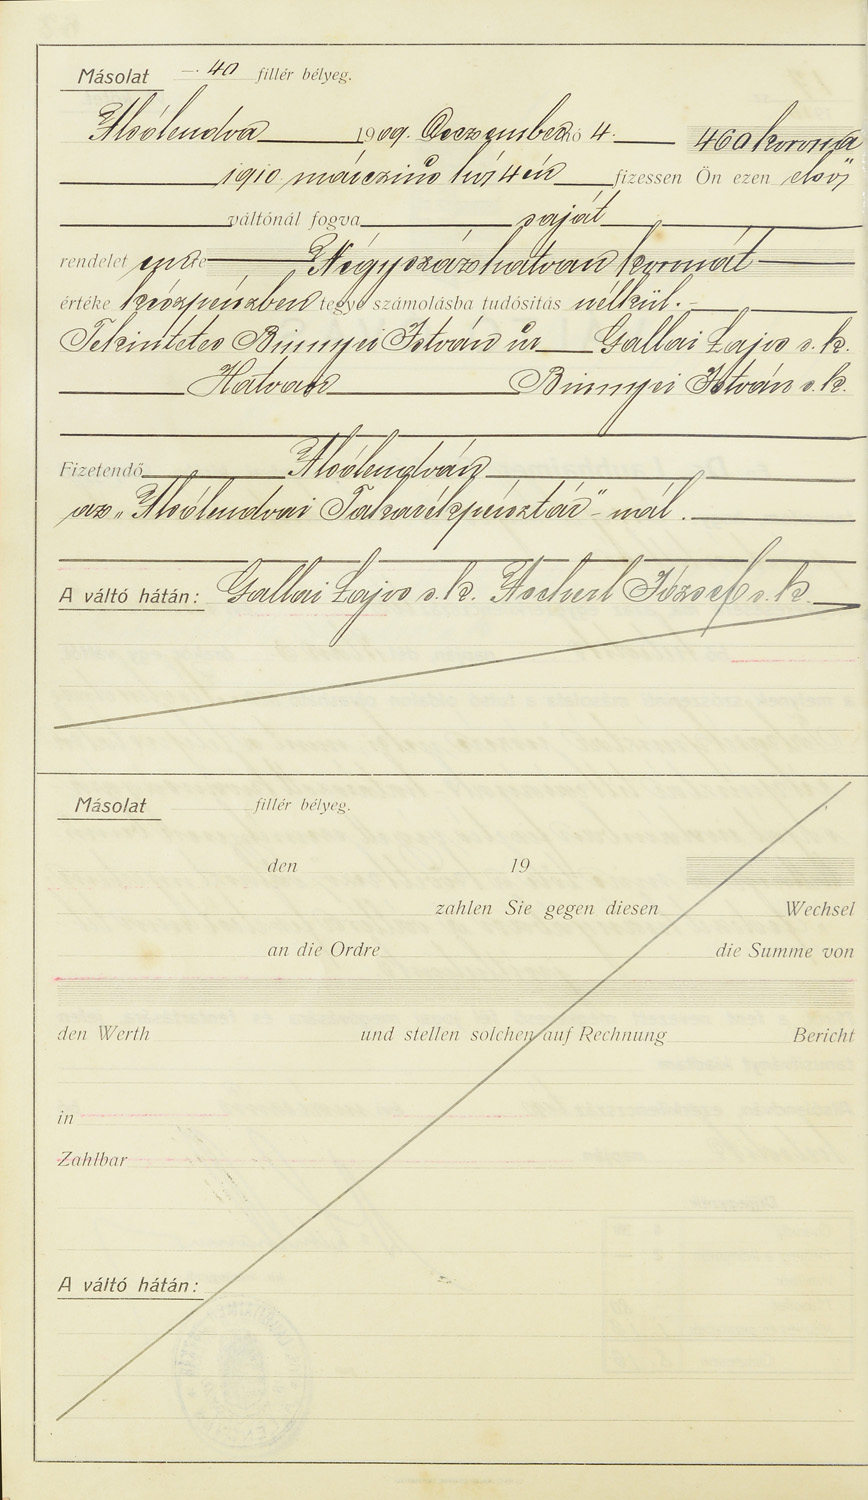 Másolat –·40 fillér bélyeg.
Alsólendva 1909. Deczember hó 4. 460 korona
1910 márczius hó 4én fizessen Ön ezen első
váltónál fogva saját
rendelet emre Négyszázhatvan koronát
értéke készpénzben tegye számolásba tudósitás nélkül.-
Tekintetes Binnyei István úr Gallai Lajos s. k.
Hatvan Binnyei István s. k.
Fizetendő Alsólendván
az „Alsólendvai Takarékpénztár"-nál.
A váltó hátán: Gallai Lajos s. k. József s. k.
Másolat fillér bélyeg.
den 19
zahlen Sie gegen diesen Wechsel
an die Ordre die Summe von
den Werth und stellen solchen auf Rechnung Bericht
in
Zahlbar
A váltó hátán: